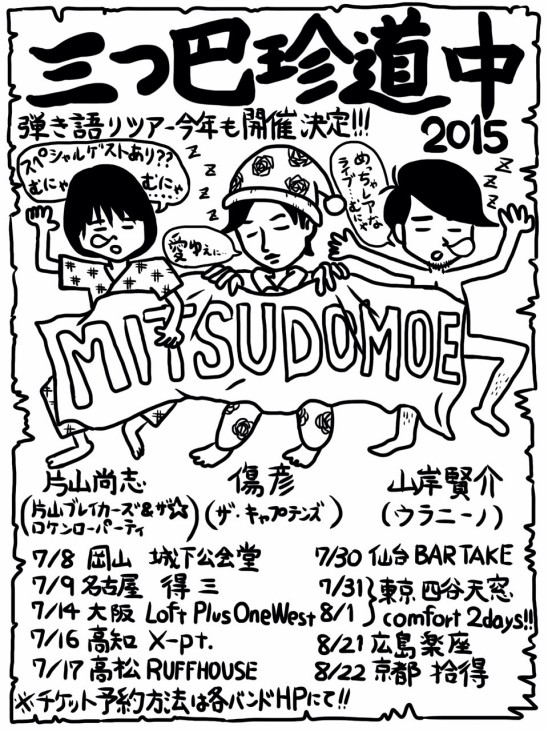 三つ巴珍道中
2015
弾き語りツアー今年も開催決定!!!
スペシャルゲストあり??
むにゃ むにゃ
z z z z
愛ゆえに…
めっちゃレアーな
ライブ…むにゃ
z z z z
MITSUDOMOE
片山尚志
(片山ブレイカーズ&ザ☆
ロケンローパーティ)
傷彦
(ザ・キャプテンズ)
山岸賢介
(ウラニーノ)
7/8 岡山 城下公会堂
7/9 名古屋 得三
7/14 大阪 Loft PlusOneWest
7/16 高知 X-pt.
7/17 高松 RUFFHOUSE
7/30 仙台 BAR TAKE
7/31
8/1 } 東京 四谷天窓
comfort 2days!!
8/21 広島 楽座
8/22 京都 拾得
※チケット予約方法は各バンドHPにて!!